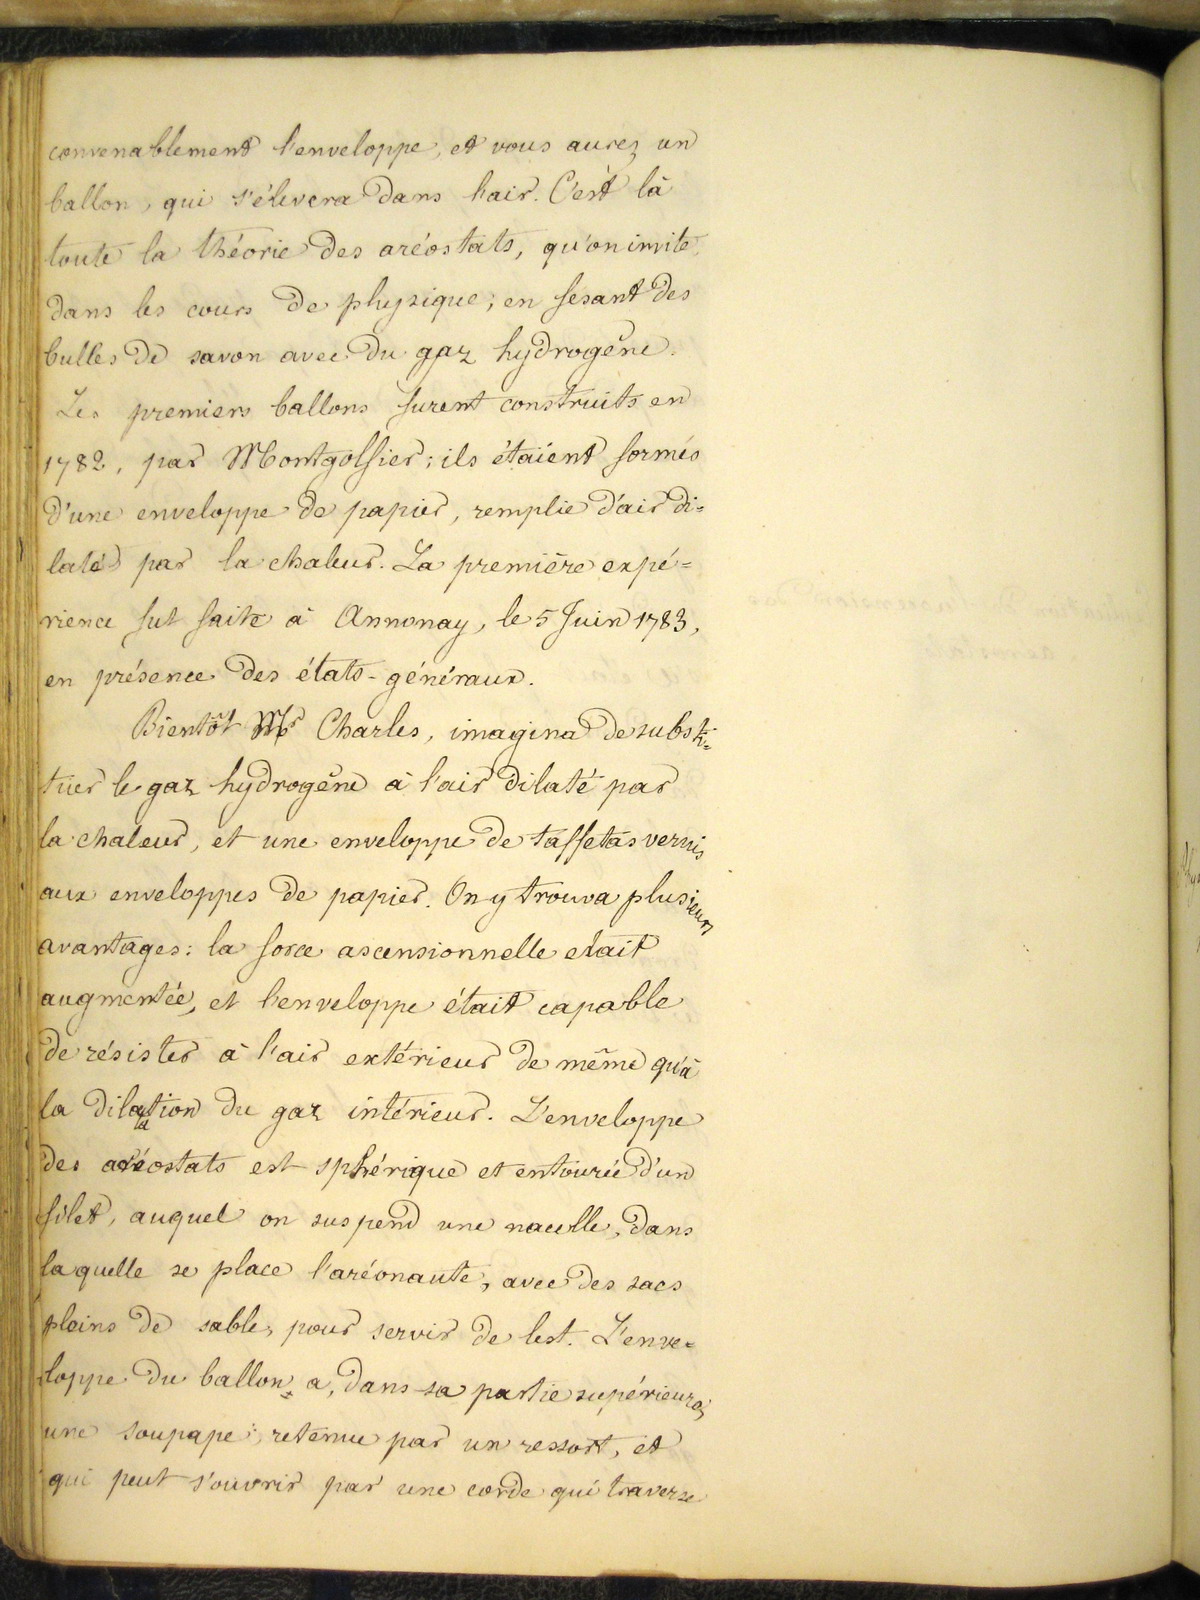 convenablement l'enveloppe, et vous aurez un
ballon, qui s'élevera dans l'air. C'est là
toute la théorie des aréostats, qu'on imite
dans les cours de physique; en fesant des
bulles de savon avec du gaz hydrogène.
Les premiers ballons furent construits en
1782, par Montgolfier; ils étaient formés
d'une enveloppe de papier, remplie d'air di=
laté par la chaleur. La première expé=
rience fut faite à Annonay, le 5 Juin 1783,
en présence des états-généraux.
Bientôt Mr Charles, imagina de substi=
tuer le gaz hydrogène à l'air dilaté par
la chaleur, et une enveloppe de taffetas vernis
aux enveloppes de papier. On y trouva plusieurs
avantages: la force ascensionnelle etait
augmentée, et l'enveloppe était capable
de résister à l'air extérieur de même qu'à
la dilatation du gaz intérieur. L'enveloppe
des aréostats est sphérique et entourée d'un
filet, auquel on suspend une nacelle, dans
laquelle se place l'aréonaute, avec des sacs
pleins de sable, pour servir de lest. L'enve=
loppe du ballon, a, dans sa partie supérieure,
une soupape, retenue par un ressort, et
qui peut s'ouvrir par une corde qui traverse